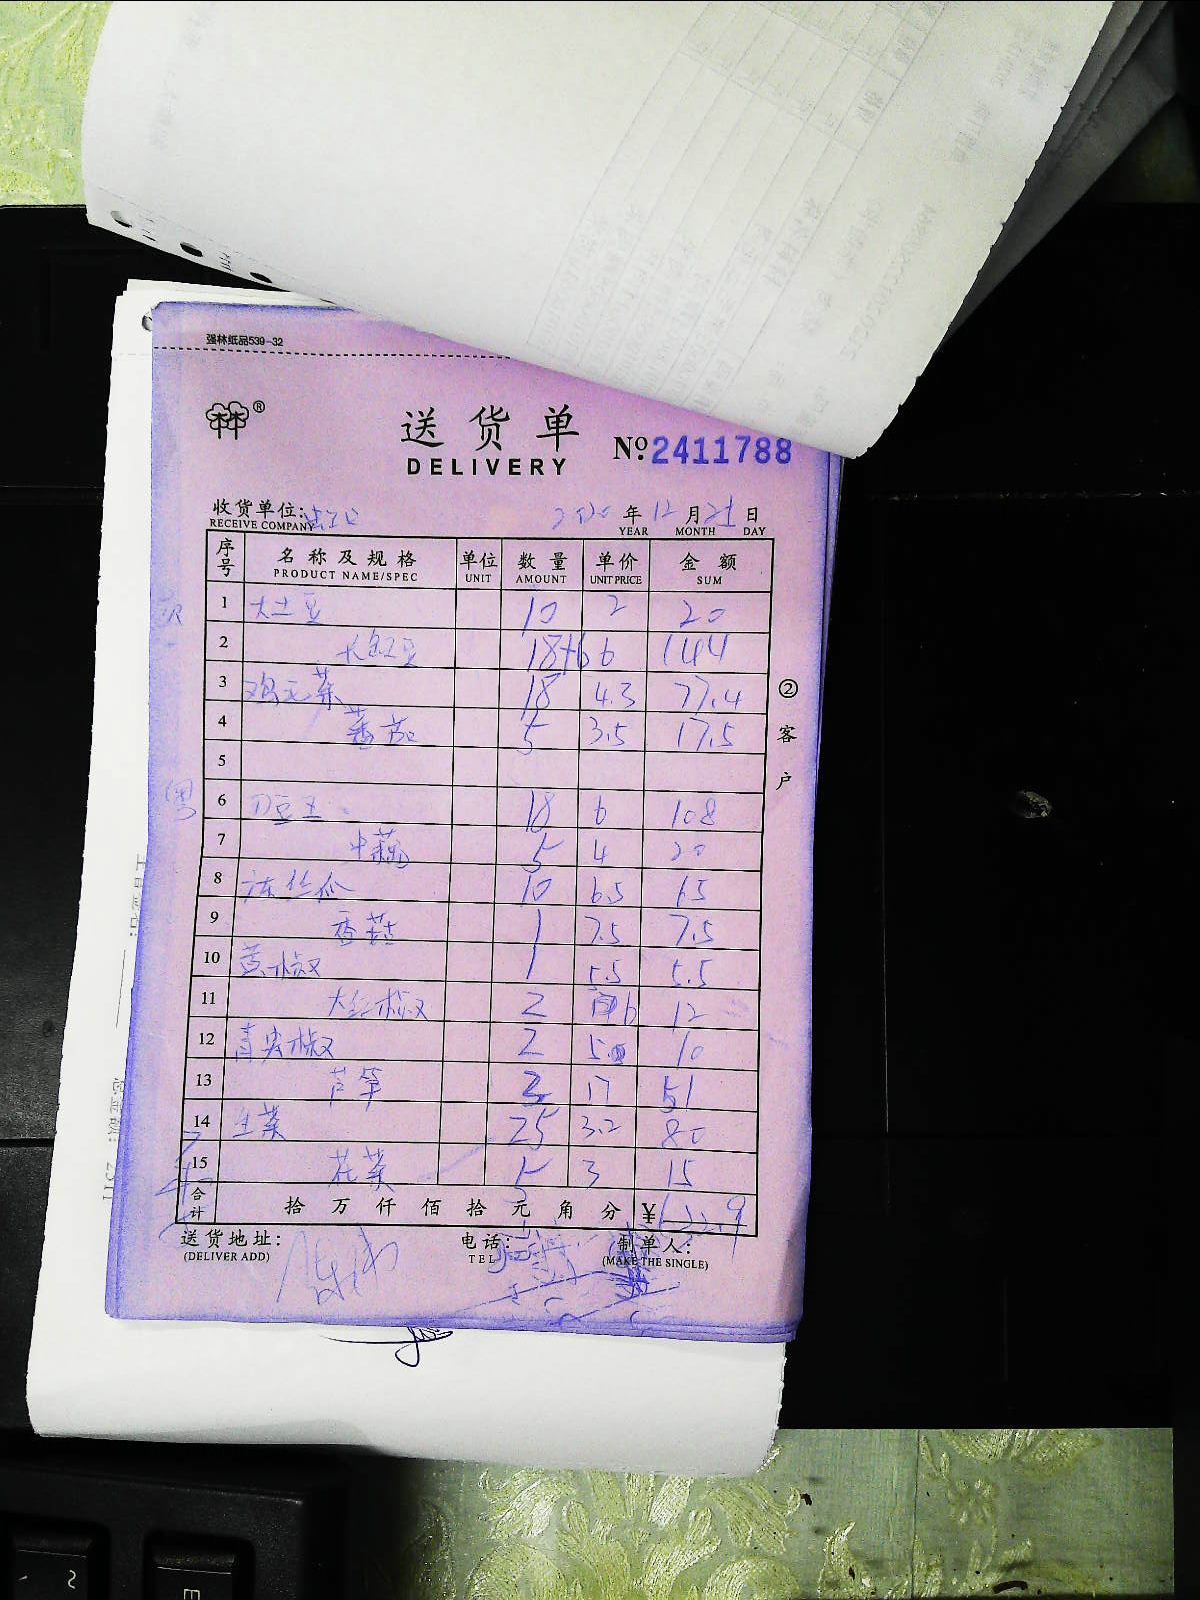 强林纸品539-32
林林®
送货单
DELIVERY
№ 2411788
收货单位:
RECEIVE COMPANY
2020 年 12 月 21 日
YEAR MONTH DAY
序号 名称及规格 单位 数量 单价 金额
PRODUCT NAME/SPEC UNIT AMOUNT UNIT PRICE SUM
1 大土豆 10 2 20
2 18+6 6 144
3 鸡毛菜 18 4.3 77.4
4 番茄 5 3.5 17.5
5
6 刀豆 18 6 108
7 中藕 5 4 20
8 丝瓜 10 6.5 65
9 香菇 1 7.5 7.5
10 黄椒 1 5.5 5.5
11 大红椒 2 6 12
12 青尖椒 2 5 10
13 芦笋 3 17 51
14 生菜 25 3.2 80
15 花菜 5 3 15
合计 拾 万 仟 佰 拾 元 角 分 ¥ 632.9
② 客户
送货地址: 电话: 制单人:
(DELIVER ADD) TEL (MAKE THE SINGLE)